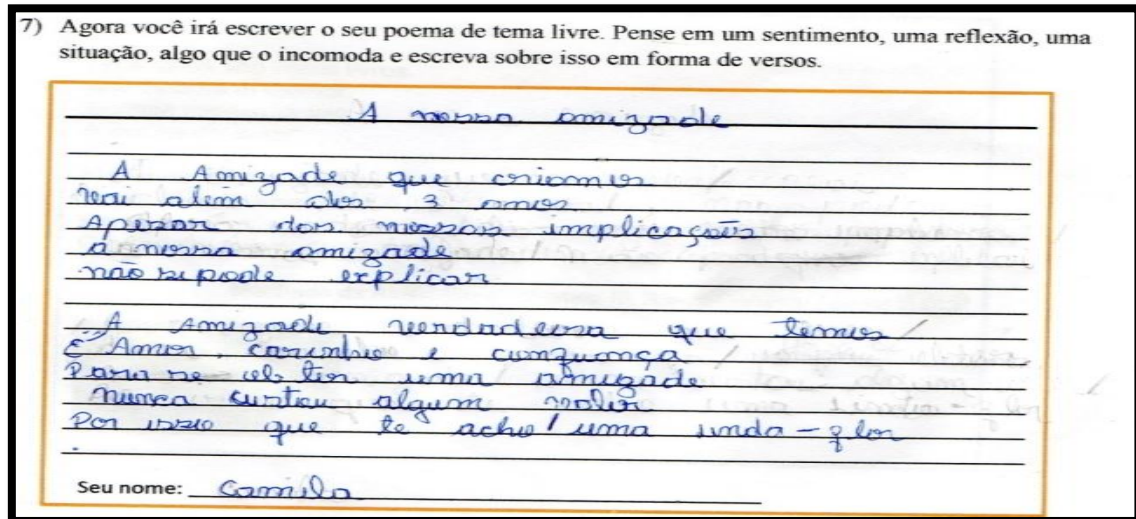 7) Agora você irá escrever o seu poema de tema livre. Pense em um sentimento, uma reflexão, uma
situação, algo que o incomoda e escreva sobre isso em forma de versos.
A nossa amizade
A Amizade que criamos
vai alem dos 3 anos
Apezar das nossas implicações
a nossa amizade
não se pode explicar
A Amizade verdadeira que temos /
É Amor, carinho e
Para se uma amizade
nunca custou algum valor
Por isso que te acho / uma linda - flor
Seu nome: Camila